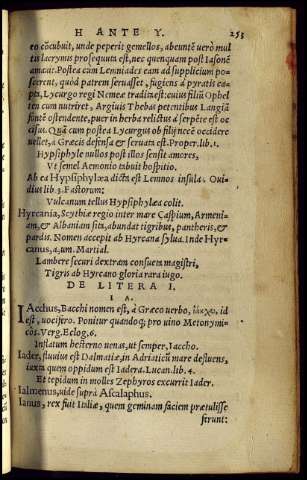 H ANTE Y. 253
eo cōcubuit, unde peperit gemellos, abeuntē uerò mul
tis lacrymis prosequuta est, nec quenquam post Iasonē
amauit. Postea cum Lemniades eam ad supplicium po-
scerent, quòd patrem seruasset, fugiens à pyratis ca-
pta, Lycurgo regi Nemeæ tradita est: cuius filiū Ophel
ten cum nutriret, Argiuis Thebas petentibus Langiā
fontē ostendente, puer in herba relictus à serpēte est oc
cisus. Quā cum postea Lycurgus ob filij necē occidere
uellet, à Græcis defensa & seruata est. Proper. lib. 1.
Hypsiphyle nullos post illos sensit amores,
Vt semel Aemonio tabuit hospitio.
Ab ea Hypsiphylæa dicta est Lemnos insula. Oui-
dius lib. 3. Fastorum:
Vulcanum tellus Hypsiphylæa colit.
Hyrcania, Scythiæ regio inter mare Caspium, Armeni-
am, & Albaniam sita, abundat tigribus, pantheris, &
pardis. Nomen accepit ab Hyrcana sylua. Inde Hyr-
canus, a, um. Martial.
Lambere securi dextram consueta magistri,
Tigris ab Hyrcano gloria rara iugo.
DE LITERA I.
I A.
IAcchus, Bacchi nomen est, à Græco uerbo, ἰάχω, id
est, uocifero. Ponitur quandoq; pro uino Metonymi-
cōs. Verg. Eclog. 6.
Inflatum hesterno uenas, ut semper, Iaccho.
Iader, fluuius est Dalmatiæ, in Adriaticū mare defluens,
iuxta quem oppidum est Iadera. Lucan. lib. 4.
Et tepidum in molles Zephyros excurrit Iader.
Ialmenus, uide suprà Ascalaphus.
Ianus, rex fuit Italiæ, quem geminam faciem prætulisse
ferunt: